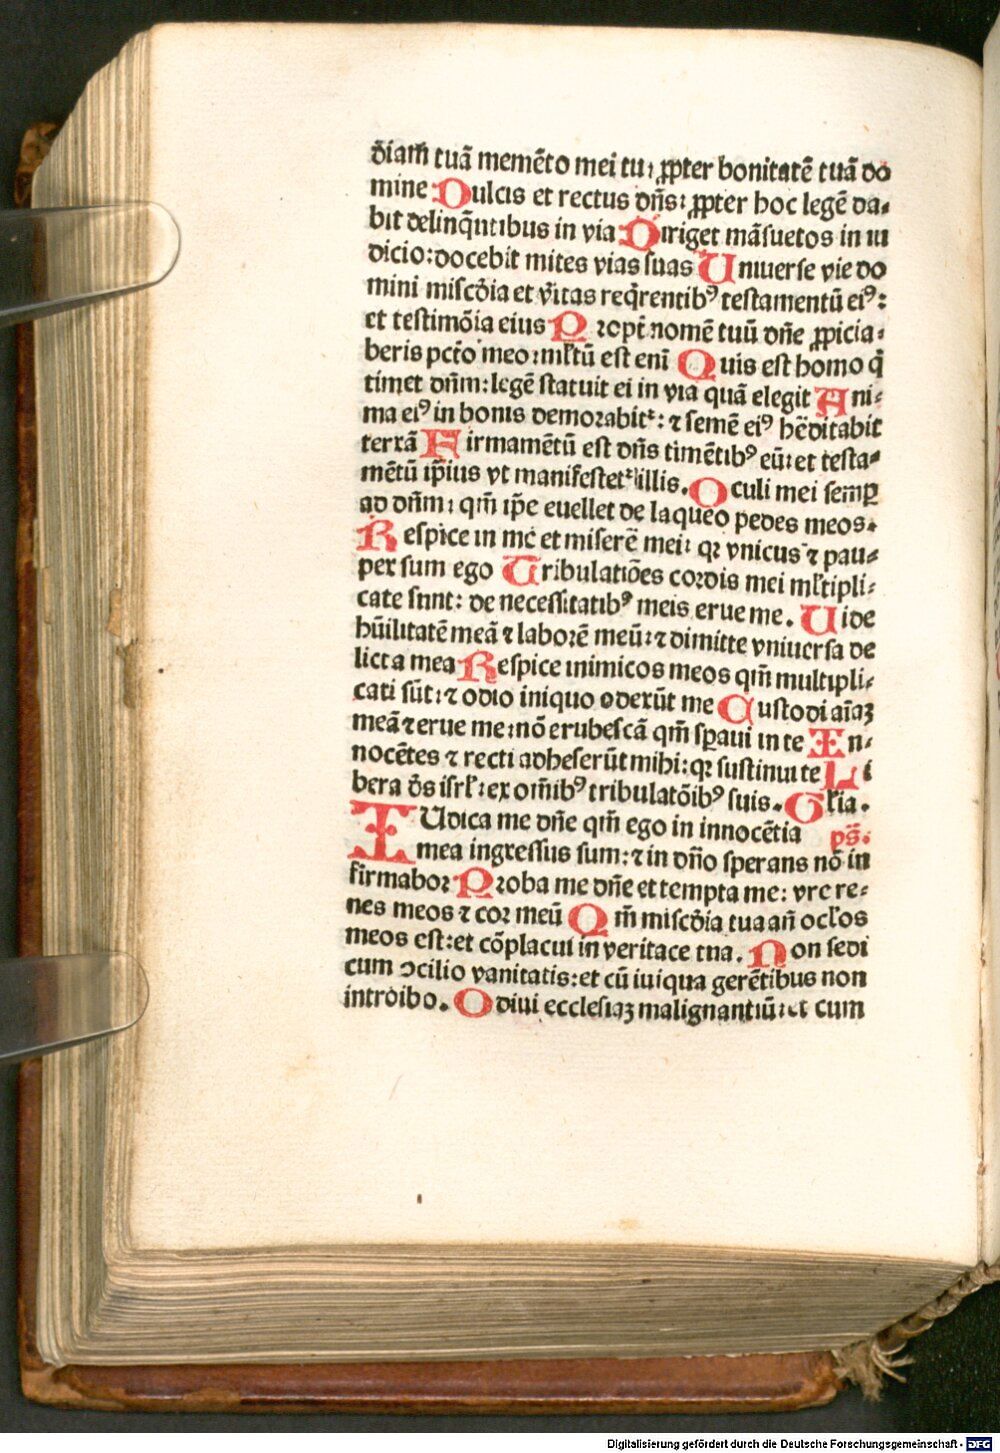 ðiam̃ tuā memēto mei tu: ꝓpter bonitatē tuā do
mine Dulcis et rectus dñs: ꝓpter hoc legē da-
bit delinq̄ntibus in via Diriget māsuetos in iu
dicio: docebit mites vias suas Uniuerse vie do
mini misc̄dia et v̄itas req̄rentibꝰ testamentū eiꝰ:
et testimōia eius Propt̄ nomē tuū dñe ꝓpicia-
beris pctō meo: ml̄tū est enī Quis est homo q̄
timet dñm: legē statuit ei in via quā elegit Ani-
ma eiꝰ in bonis demorabitᷣ: ⁊ semē eiꝰ hēditabit
terrā Firmamētū est dñs timētibꝰ eū: et testa-
mētū ip̄ius vt manifestetᷣ illis. Oculi mei semꝑ
ad dñm: qm̄ ip̄e euellet de laqueo pedes meos.
Respice in me et miserē mei: qꝛ vnicus ⁊ pau-
per sum ego Tribulatiōes cordis mei ml̄tipli-
cate snnt: de necessitatibꝰ meis erue me. Uide
hūilitatē meā ⁊ laborē meū: ⁊ dimitte vniuersa de
licta mea Respice inimicos meos qm̄ multipli-
cati sūt: ⁊ odio iniquo oderūt me Custodi aīaꝫ
meā ⁊ erue me: nō erubescā qm̄ sꝑaui in te In-
nocētes ⁊ recti adheserūt mihi: qꝛ sustinui te Li
bera d̄s isrl̄: ex om̄ibꝰ tribulatōibꝰ suis. Gl̄ia.
IUdica me dñe qm̄ ego in innocētia ps̄.
mea ingressus sum: ⁊ in dño sperans nō in
firmabor Proba me dñe et tempta me: vre re-
nes meos ⁊ cor meū Qm̄ misc̄dia tua añ ocl̄os
meos est: et cōplacui in veritace tna. Non sedi
cum ↄcilio vanitatis: et cū iuiqua gerētibus non
introibo. Odiui ecclesiaꝫ malignantiū: et cum
Digitalisierung gefördert durch die Deutsche Forschungsgemeinschaft - DFG